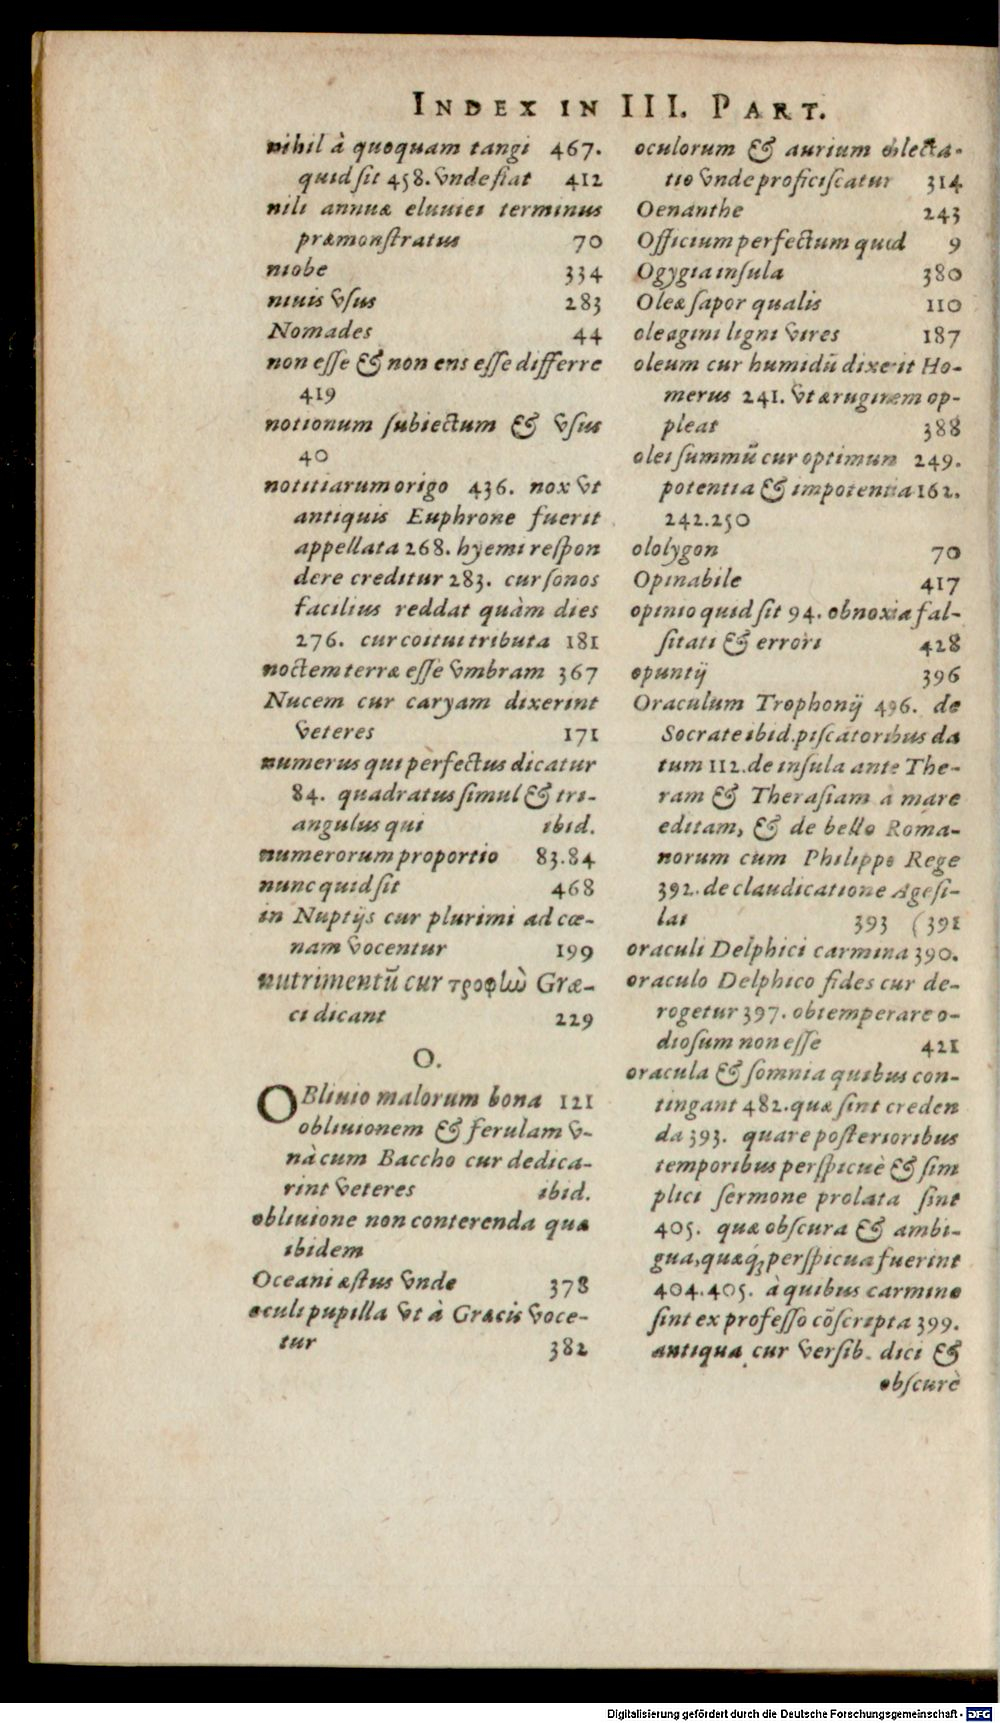 INDEX IN III. PART.
nihil à quoquam tangi 467.
quid sit 458. vnde fiat 412
nili annuæ eluuiei terminus
præmonstratus 70
niobe 334
niuis vsus 283
Nomades 44
non esse & non ens esse differre
419
notionum subiectum & vsus
40
notitiarum origo 436. nox vt
antiquis Euphrone fuerit
appellata 268. hyemi respon
dere creditur 283. cur sonos
facilius reddat quàm dies
276. cur coitui tributa 181
noctem terræ esse vmbram 367
Nucem cur caryam dixerint
veteres 171
numerus qui perfectus dicatur
84. quadratus simul & tri-
angulus qui ibid.
numerorum proportio 83.84
nunc quid sit 468
in Nuptijs cur plurimi ad cœ-
nam vocentur 199
nutrimentū cur τροφὼ Græ-
ci dicant 229
O.
OBliuio malorum bona 121
obliuionem & ferulam v-
nà cum Baccho cur dedica-
rint veteres ibid.
obliuione non conterenda quæ
ibidem
Oceani æstus vnde 378
oculi pupilla vt à Græcis voce-
tur 382
oculorum & aurium oblecta-
tio vnde proficiscatur 314
Oenanthe 243
Officium perfectum quid 9
Ogygia insula 380
Oleæ sapor qualis 110
oleagini ligni vires 187
oleum cur humidū dixerit Ho-
merus 241. vt æruginem op-
pleat 388
olei summū cur optimum 249.
potentia & impotentia 162.
242.250
ololygon 70
Opinabile 417
opinio quid sit 94. obnoxia fal-
sitati & errori 428
opuntij 396
Oraculum Trophonij 496. de
Socrate ibid. piscatoribus da
tum 112. de insula ante The-
ram & Therasiam a mare
editam, & de bello Roma-
norum cum Philippo Rege
392. de claudicatione Agesi-
lai 393 (391
oraculi Delphici carmina 390.
oraculo Delphico fides cur de-
rogetur 397. obtemperare o-
diosum non esse 421
oracula & somnia quibus con-
tingant 482. quæ sint creden
da 393. quare posterioribus
temporibus perspicuè & sim
plici sermone prolata sint
405. quæ obscura & ambi-
gua, quæq; perspicua fuerint
404.405. à quibus carmine
sint ex professo cōscripta 399.
antiqua cur versib. dici &
obscurè
Digitalisierung gefördert durch die Deutsche Forschungsgemeinschaft - DFG